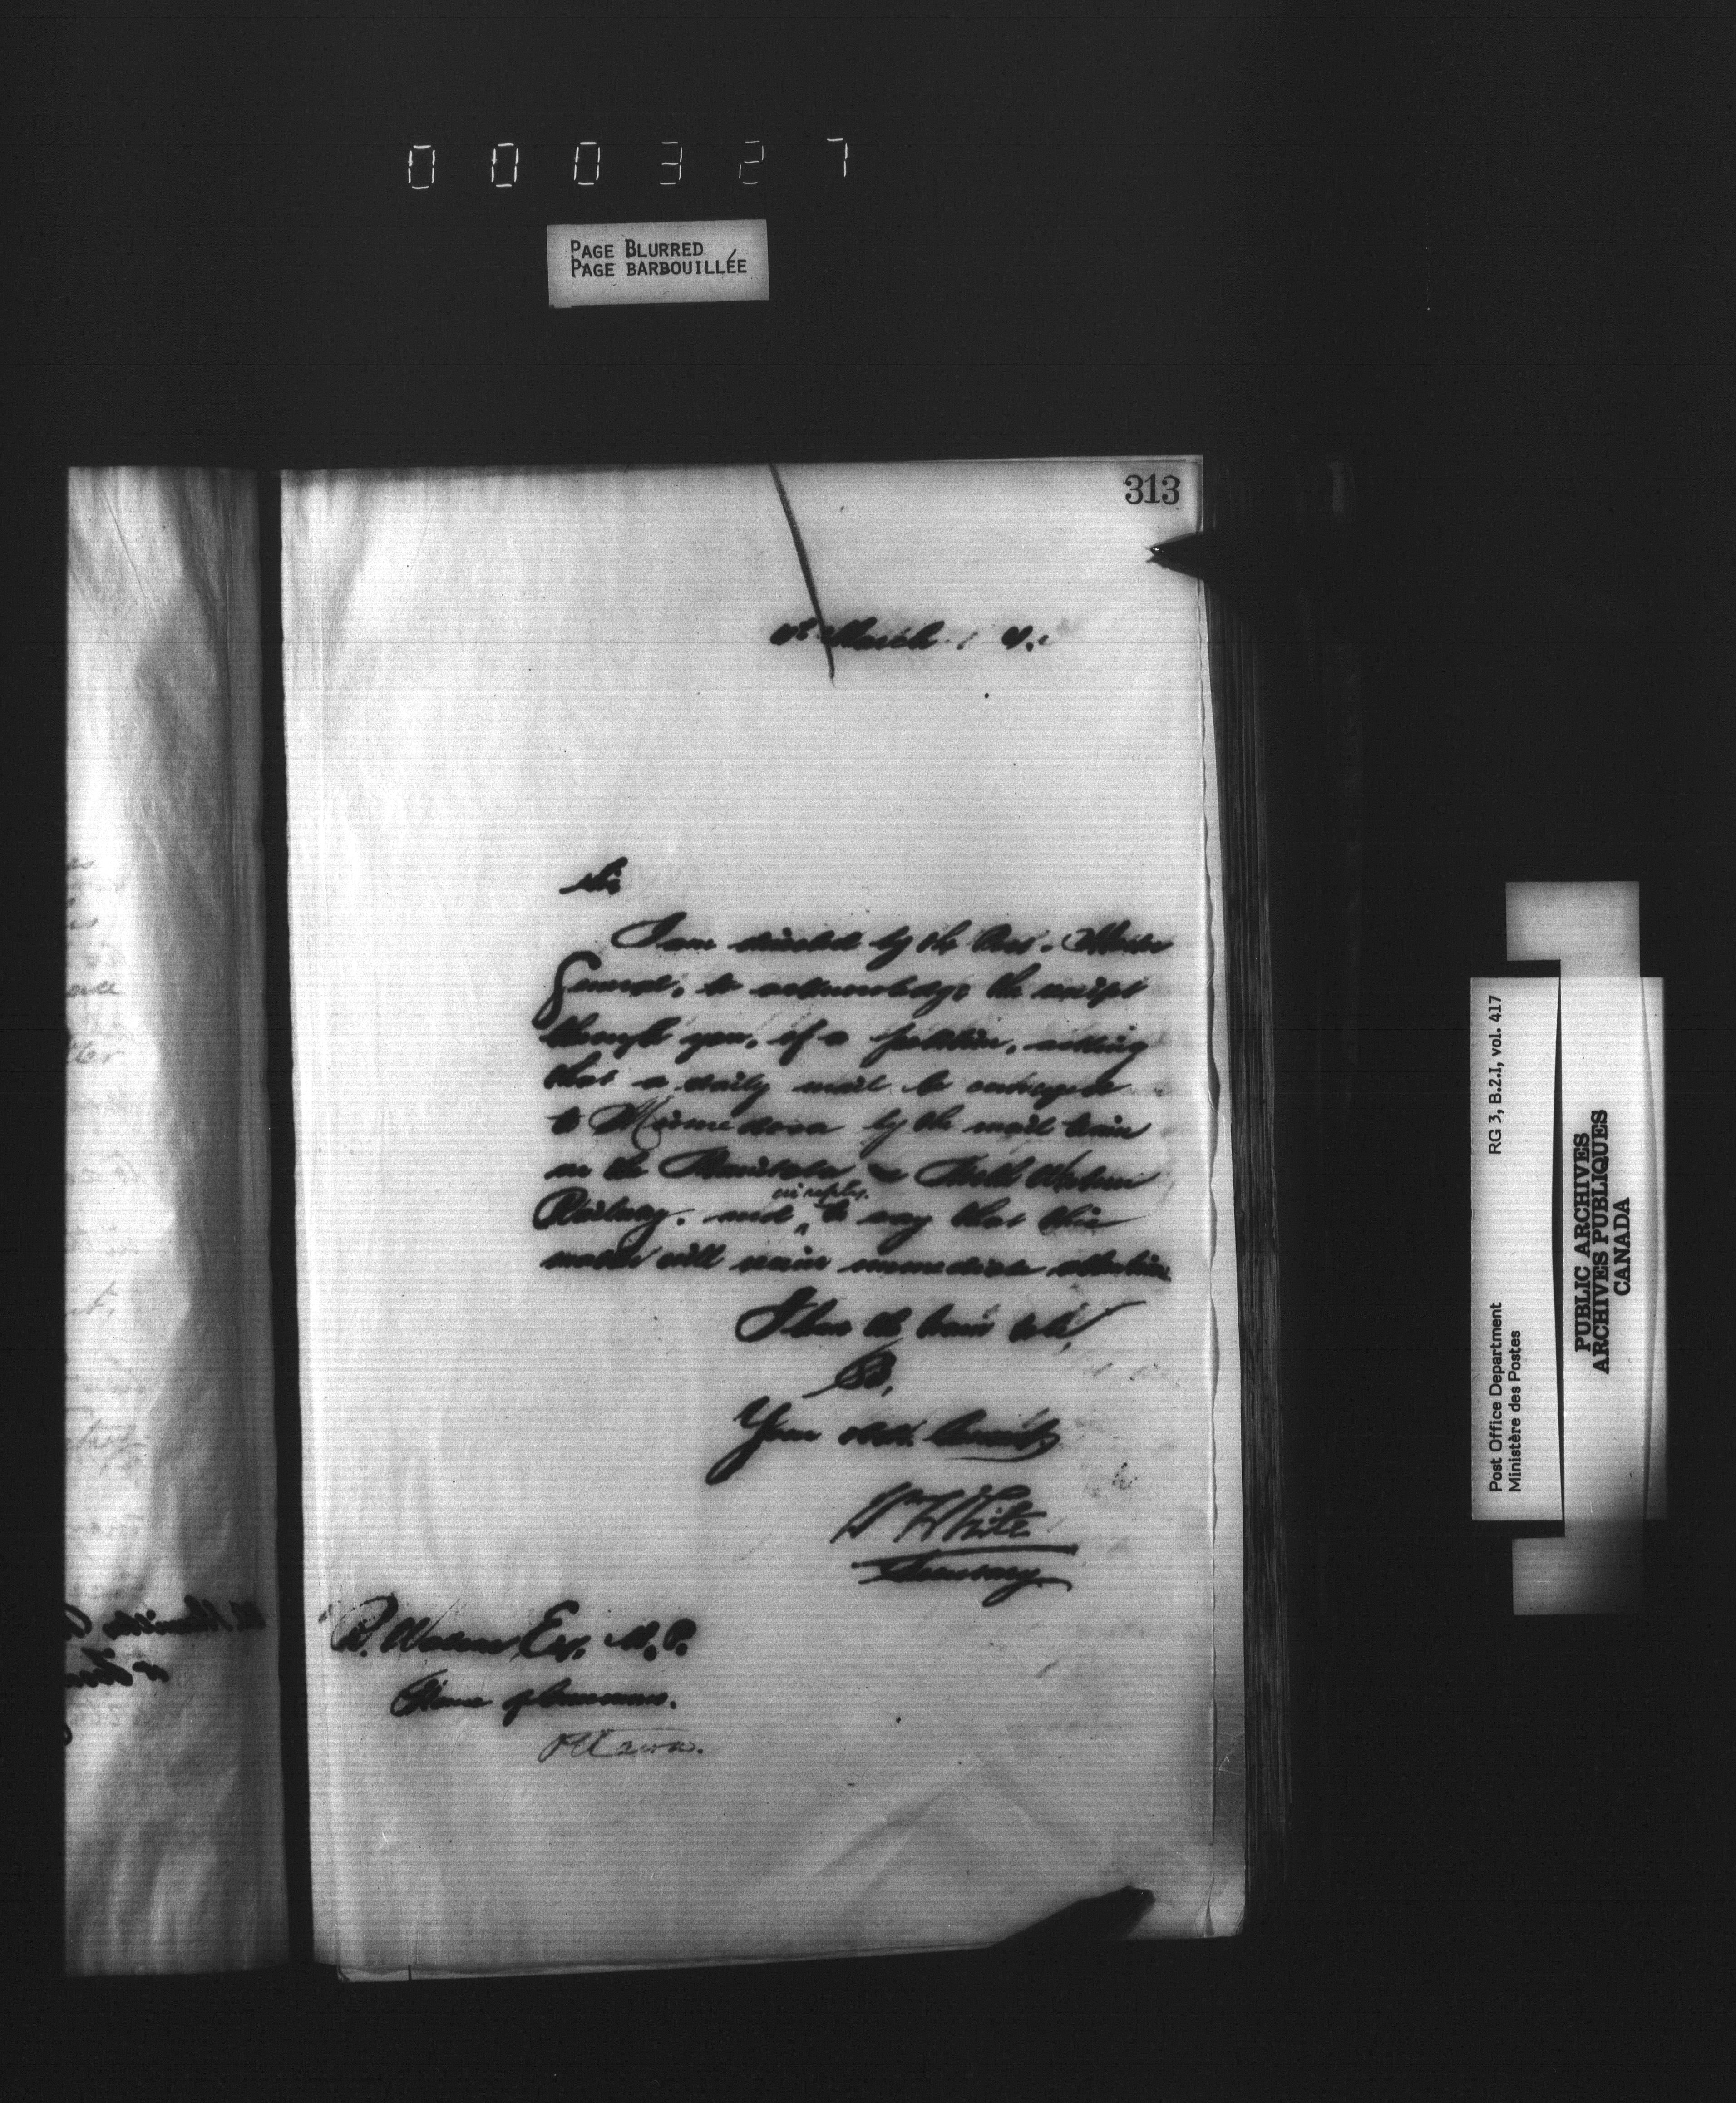 000327
PAGE BLURRED
PAGE BARBOUILLÉE
313
March
Sir
I am directed by the Post. Master
General, to acknowledge the receipt
through you, of a petition, asking
that a daily mail be conveyed
to Minnedosa by the mail train
on the Manitoba & North Western
Railway. and in reply. to say that this
matter will receive immediate attention
I have the honor to be,
Sir,
Your obdt. Servant,
Wm White
Secretary.
R. Watson, Esq. M.P.
House of Commons.
Ottawa.
Post Office Department RG 3, B.2.I, vol. 417
Ministère des Postes
PUBLIC ARCHIVES
ARCHIVES PUBLIQUES
CANADA